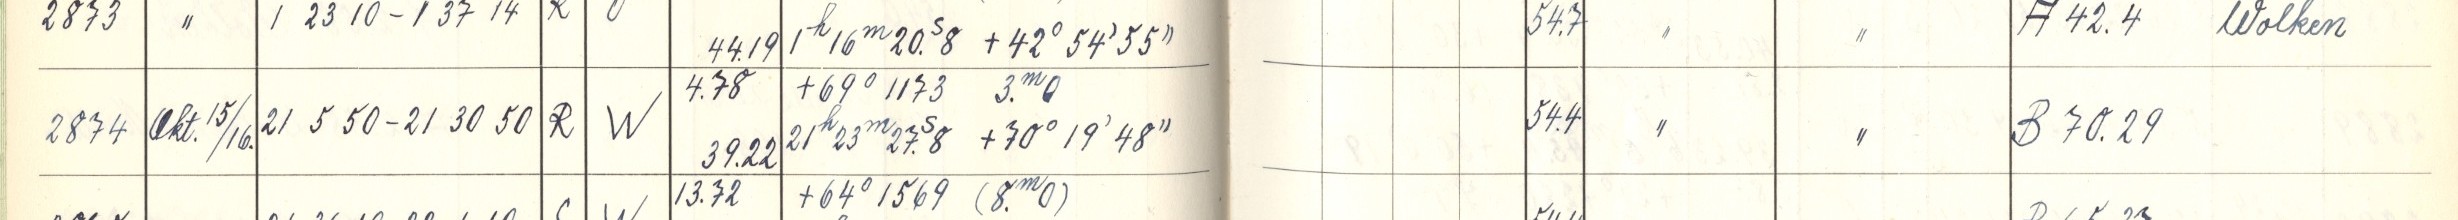 2873 " 1 23 10 – 1 37 14 R O 44.19 1ʰ 16ᵐ 20.ˢ8 +42° 54' 55" 54.7 " " A 42.4 Wolken
4.78 +69° 1173 3.ᵐ0
2874 Okt. 15/16. 21 5 50 – 21 30 50 R W 39.22 21ʰ 23ᵐ 27.ˢ8 +70° 19' 48" 54.4 " " B 70.29
13.72 +64° 1569 (8.ᵐ0)